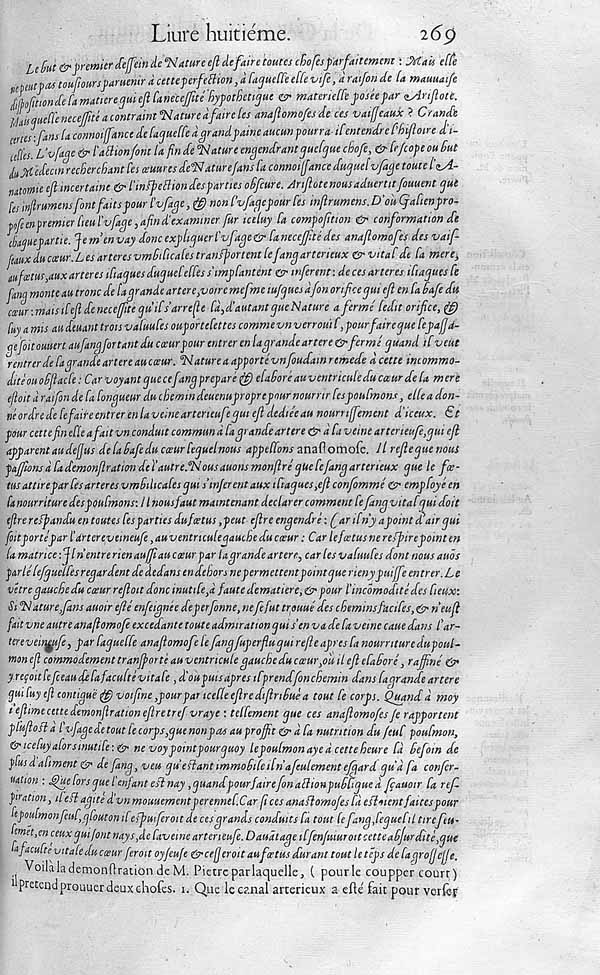 Liure huitiéme. 269
Le but & premier dessein de Nature est de faire toutes choses parfaitement : Mais elle
ne peut pas tousiours paruenir à cette perfection, à laquelle elle vise, à raison de la mauuaise
disposition de la matiere qui est la necessité hypothetique & materielle posée par Aristote.
Mais quelle necessité a contraint Nature à faire les anastomoses de ces vaisseaux ? Grande
certes : sans la connoissance de laquelle à grand paine aucun pourra il entendre l'histoire d'i-
celles. L'vsage & l'action sont la fin de Nature engendrant quelque chose, & le scope ou but
du Medecin recherchant les œuures de Nature sans la connoissance duquel vsage toute l'A-
natomie est incertaine & l'inspection des parties obscure. Aristote nous aduertit souuent que
les instrumens sont faits pour l'vsage, & non l'vsage pour les instrumens. D'où Galien pro-
pose en premier lieu l'vsage, afin d'examiner sur iceluy la composition & conformation de
chaque partie. Je m'en vay donc expliquer l'vsage & la necessité des anastomoses des vais-
seaux du cœur. Les arteres vmbilicales transportent le sang arterieux & vital de la mere,
au fœtus, aux arteres iliaques duquel elles s'implantent & inserent : de ces arteres iliaques le
sang monte au tronc de la grande artere, voire mesme iusques à son orifice qui est en la base du
cœur : mais il est de necessité qu'il s'arreste là, d'autant que Nature a fermé ledit orifice, &
luy a mis au deuant trois valuules ou portelettes comme vn verrouil, pour faire que le passa-
ge soit ouuert au sang sortant du cœur pour entrer en la grande artere & fermé quand il veut
rentrer de la grande artere au cœur. Nature a apporté vn soudain remede à cette incommo-
dité ou obstacle : Car voyant que ce sang preparé & elaboré au ventricule du cœur de la mere
estoit à raison de la longueur du chemin deuenu propre pour nourrir les poulmons, elle a don-
né ordre de le faire entrer en la veine arterieuse qui est dediée au nourrissement d'iceux. Et
pour cette fin elle a fait vn conduit commun à la grande artere & à la veine arterieuse, qui est
apparent au dessus de la base du cœur lequel nous appellons anastomose. Il reste que nous
passions à la demonstration de l'autre. Nous auons monstré que le sang arterieux que le fœ-
tus attire par les arteres vmbilicales qui s'inserent aux iliaques, est consommé & employé en
la nourriture des poulmons : Il nous faut maintenant declarer comment le sang vital qui doit
estre respandu en toutes les parties du fœtus, peut estre engendré : Car il n'y a point d'air qui
soit porté par l'artere veineuse, au ventricule gauche du cœur : Car le fœtus ne respire point en
la matrice : Il n'entre rien aussi au cœur par la grande artere, car les valuules dont nous auõs
parlé lesquelles regardent de dedans en dehors ne permettent point que rien y puisse entrer. Le
vẽtre gauche du cœur restoit donc inutile, à faute de matiere, & pour l'incõmodité des lieux :
Si Nature, sans auoir esté enseignée de personne, ne se fut trouué des chemins faciles, & n'eust
fait vne autre anastomose excedante toute admiration qui s'en va de la veine caue dans l'ar-
tere veineuse, par laquelle anastomose le sang superflu qui reste apres la nourriture du poul-
mon est commodement transporté au ventricule gauche du cœur, où il est elaboré, raffiné &
y reçoit le sceau de la faculté vitale, d'où puis apres il prend son chemin dans la grande artere
qui luy est contiguë & voisine, pour par icelle estre distribué a tout le corps. Quand à moy
i'estime cette demonstration estre tref vraye : tellement que ces anastomoses se rapportent
plustost à l'vsage de tout le corps, que non pas au proffit & à la nutrition du seul poulmon,
& iceluy alors inutile : & ne voy point pourquoy le poulmon aye à cette heure là besoin de
plus d'aliment & de sang, veu qu'estant immobile il n'a seulement esgard qu'à sa conser-
uation : Que lors que l'enfant est nay, quand pour faire son action publique à sçauoir la res-
piration, il est agité d'vn mouuement perennel. Car si ces anastomoses là estoient faites pour
le poulmon seul, glouton il espuiseroit de ces grands conduits la tout le sang, lequel il tire seu-
lemẽt, en ceux qui sont nays, de la veine arterieuse. Dauãtage il s'ensuiuroit cette absurdité, que
la faculté vitale du cœur seroit oyseuse & cesseroit au fœtus durant tout le tẽps de la grossesse.
Voila la demonstration de M. Pietre par laquelle, ( pour le coupper court )
il pretend prouuer deux choses. 1. Que le canal arterieux a esté fait pour verser